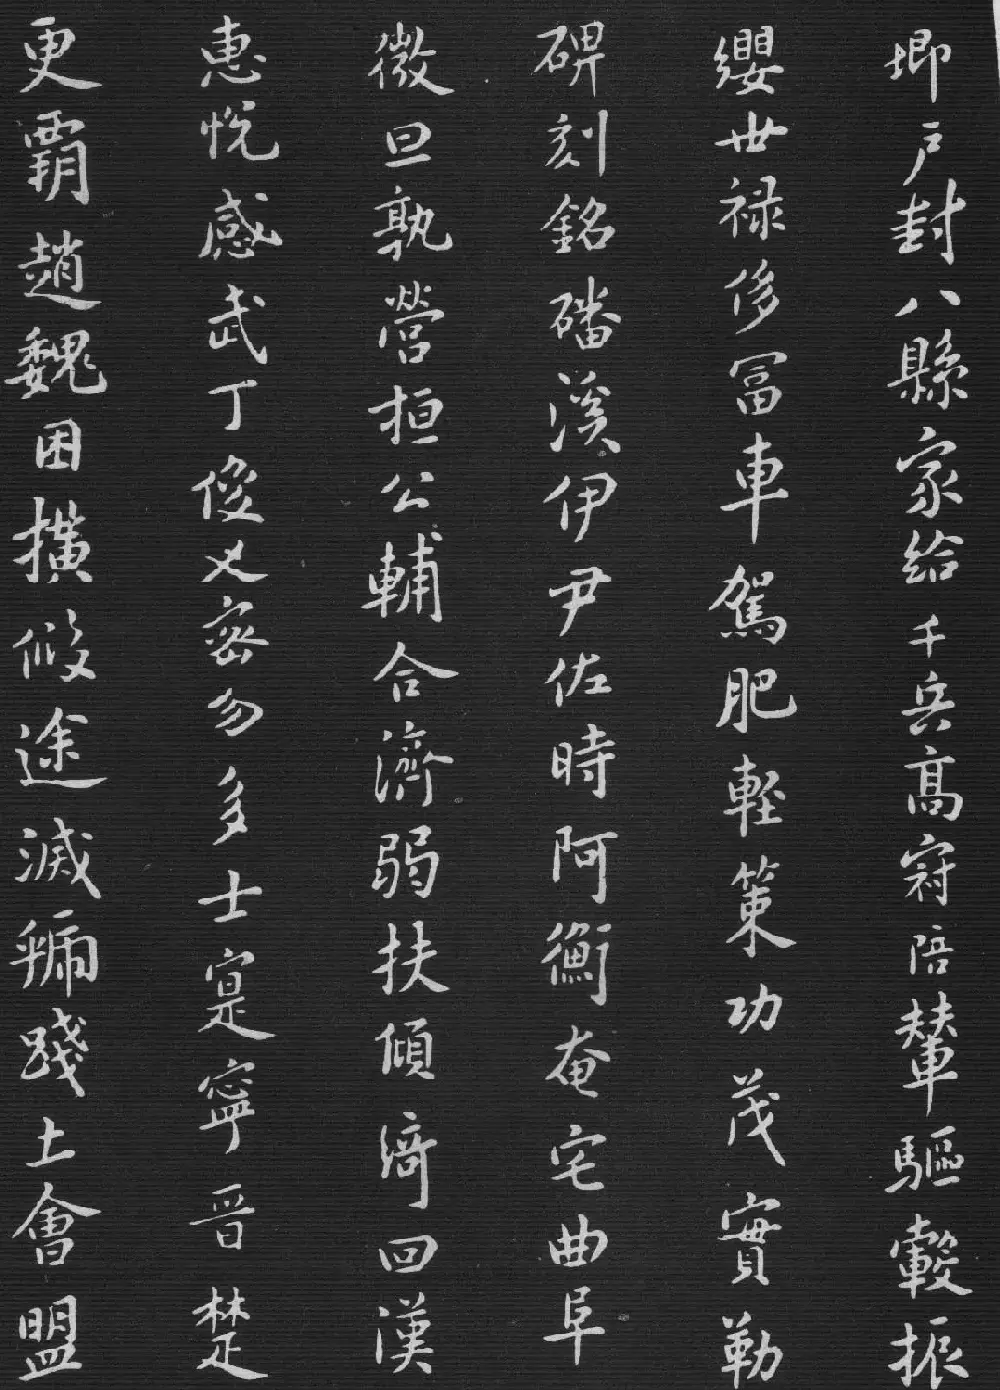 卿户封八縣家給千兵高冠陪輦驅轂振
纓世禄侈冨車駕肥輕策功茂實勒
碑刻銘磻溪伊尹佐時阿衡奄宅曲阜
微旦孰營桓公輔合濟弱扶傾綺回漢
惠悦感武丁俊乂密勿多士寔寧晋楚
更覇趙魏困横假途滅虢踐土會盟